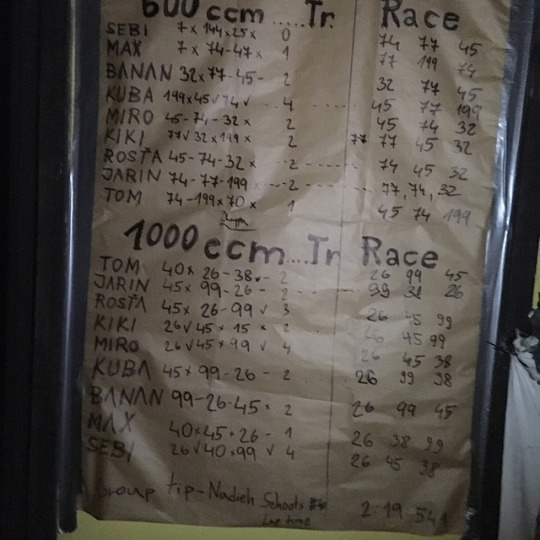 600 ccm.....Tr. Race
SEBI 7x 144x25x 0 74 77 45
MAX 7x 74-47x 1 77 199 74
BANAN 32x77-45- 2 32 74 45
KUBA 199x45√74√ 4 45 77 199
MIRO 45-74-32x 2 45 74 32
KIKI 77√32x199x 2 77 45 32
ROSŤA 45-74-32x 2 74 45 32
JARIN 74-77-199 2 77, 74, 32
TOM 74-199x70x 1 45 74 199
1000 ccm....Tr Race
TOM 40x 26-38 - 2 26 99 45
JARIN 45x99-26- 2 99 38 26
ROSŤA 45x26-99√ 3 26 45 99
KIKI 26√45x15x 2 26 45 99
MIRO 26√45x99√ 4 26 45 38
KUBA 45x99-26- 2 26 99 38
BANAN 99-26-45x 2 26 99 45
MAX 40x45-26- 1 26 38 99
SEBI 26√40x99√ 4 26 45 38
Group tip-Nadieh Schoots
2:19:54